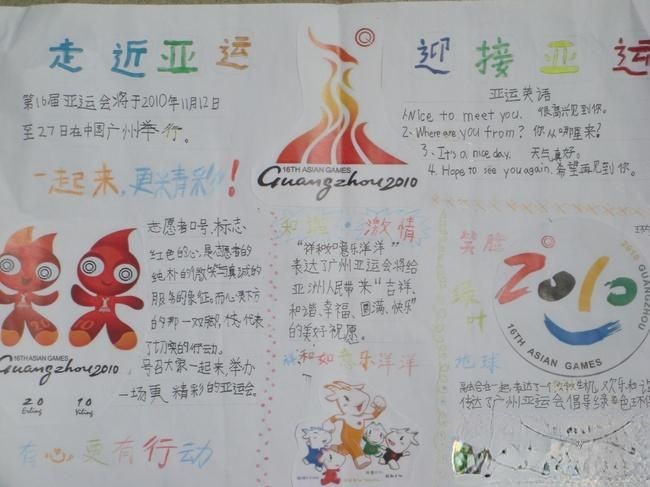 走近亚运
迎接亚运
第16届亚运会将于2010年11月12日
至27日在中国广州举行。
一起来,更精彩!
16TH ASIAN GAMES
Guangzhou 2010
亚运英语
1.Nice to meet you. 很高兴见到你。
2. Where are you from? 你从哪里来?
3. It's a nice day. 天气真好。
4. Hope to see you again. 希望再见到你。
志愿者口号、标志
红色的心,是志愿者的
纯朴的微笑与真诚的
服务的象征,而心灵下方
的那一双腿,代表
了切实的行动。
号召大家一起来,举办
一场更精彩的亚运会。
16TH ASIAN GAMES
Guangzhou 2010
20 10
有心更有行动
和谐·激情
“祥和如意乐洋洋”
表达了广州亚运会将给
亚洲人民带来“吉祥、
和谐、幸福、圆满、快乐”
的美好祝愿。
祥和如意乐洋洋
笑脸
绿叶
地球
2010
2010 GUANGZHOU
16TH ASIAN GAMES
融合在一起,表达了一个
传达了广州亚运会倡导绿色环保